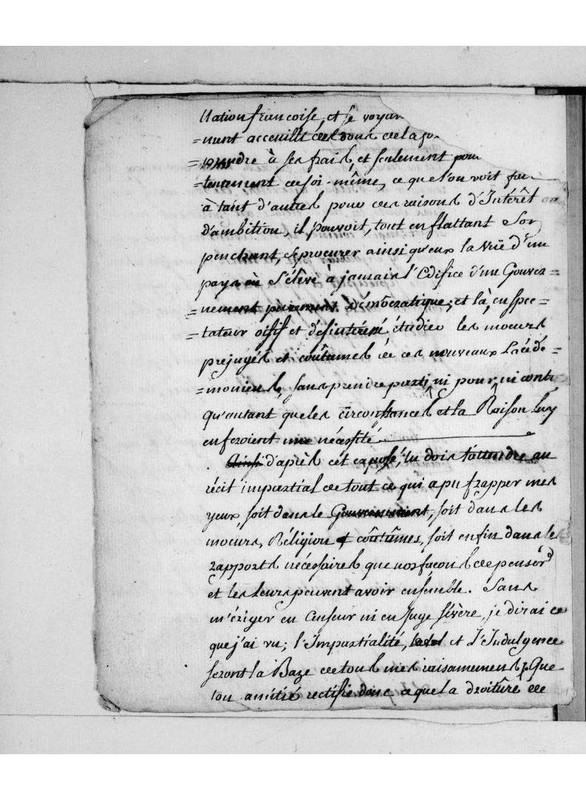 Nation francoise, et se voyan
=nunt accueilli des dous de la
=rendre à ses fraix, et seulement pour
=tentement de soi-même, ce que l'on voit fai
à tant d'autres pour des raisons d'Intérêt
d'ambition, il pouvoit, tout en flattant Son
penchant, se procurer ainsi qu'eux la vuë d'un
pays où S'élève à jamais l'Edifice d'une Gouver
=nement purement démocratique, et là, en spec
=tateur oisif et désintéressé étudier les moeurs
préjugés et coutumes de ces nouveaux Lacédé
=moniens, sans prendre parti, ni pour, ni contre
qu'autant que les circonstances et la Raison luy
en feroient une nécessité
Ainsi d'après cét exposé, tu dois t'attendre au
récit impartial de tout ce qui a pu frapper mes
yeux, soit dans le Gouvernement, soit dans les
moeurs, Religion & coûtumes, soit enfin dans le
rapports nécessaires que nos façons de penser
et les leurs peuvent avoir ensemble. Sans
m'ériger en Censeur ni en Juge sévère, je dirai ce
que j'ai vu; l'Impartialité, et l'Indulgence
seront la Baze de tous mes raisonnemens; Que
ton amitié rectifie donc ce que la droiture de